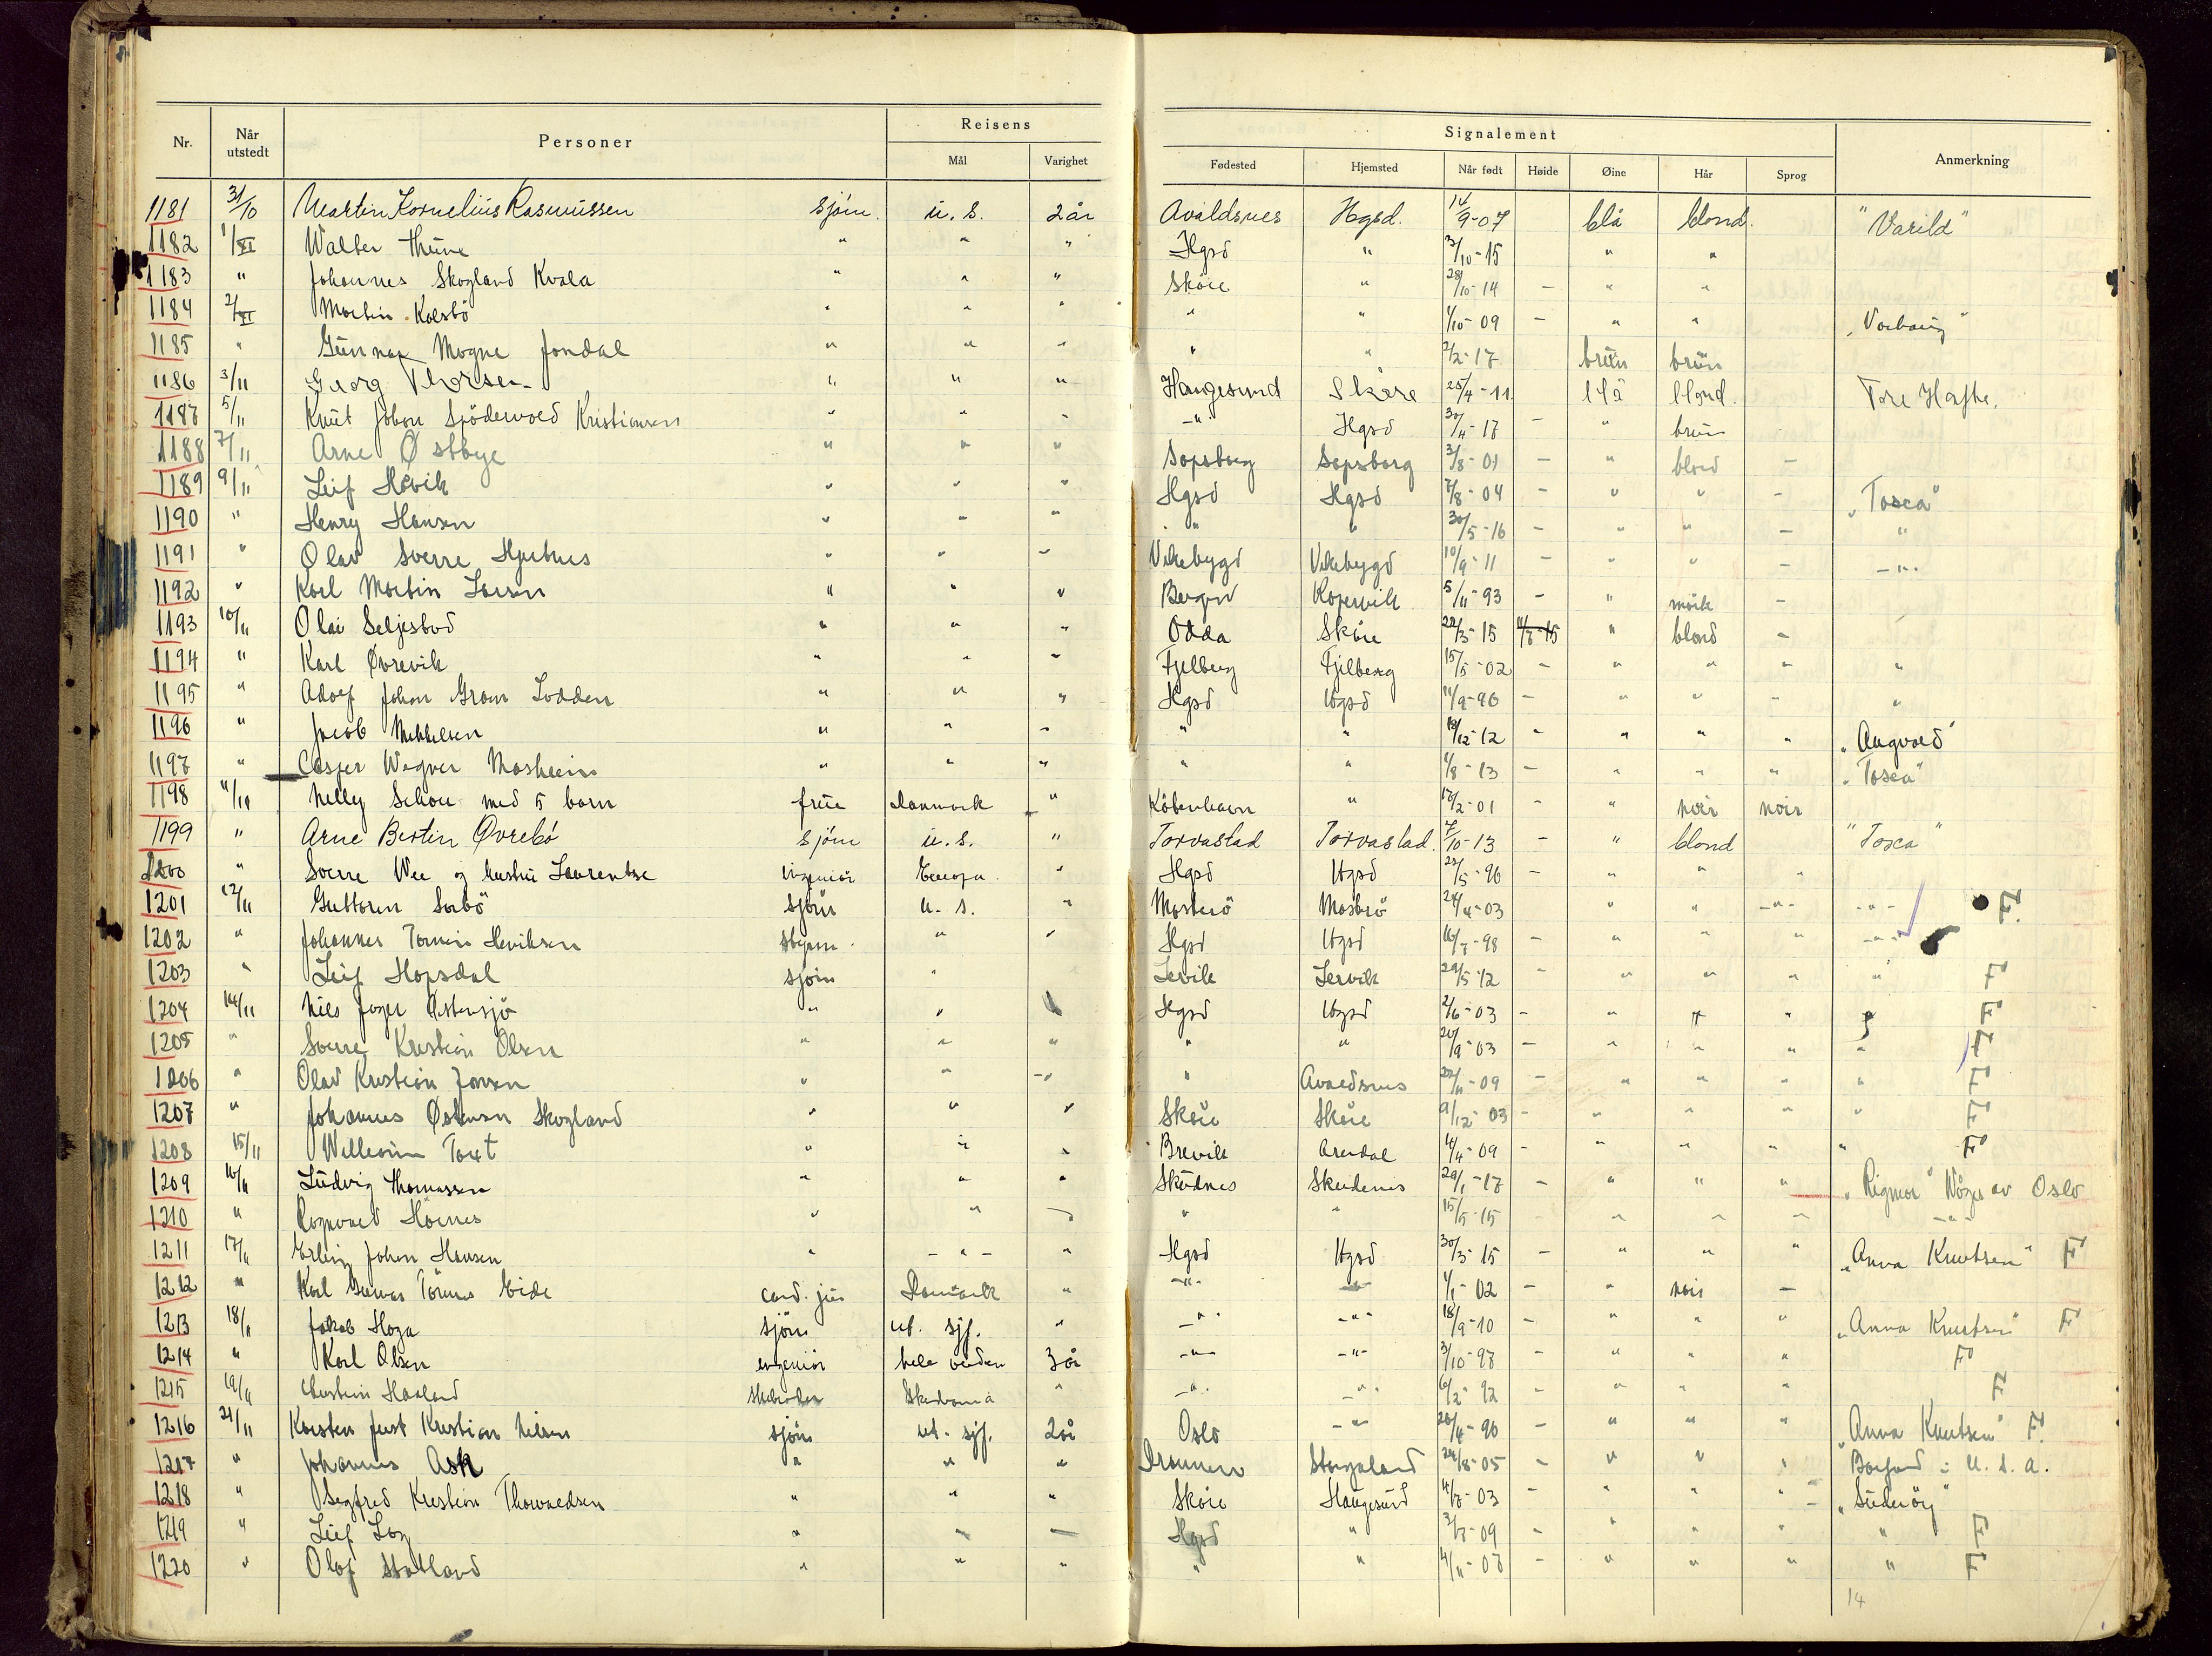 Nr. Når utstedt Personer Reisens Mål Varighet Signalement Fødested Hjemsted Når født Høide Øine Hår Sprog Anmerkning
1181 31/10 Martin Kornelius Rasmussen sjöm. u. s. 2 år Avaldsnes Hgsd. 14/9-07 blå blond. "Varild"
1182 1/XI Walter Thune " " " Hgsd " 3/10-15 " "
1183 " Johannes Skogland Kvala " " " Skåre " 28/10-14 - " "
1184 2/XI Martin Kolstö " " " " " 1/10-09 - " "
1185 " Gunnar Mogne Jondal " " " " " 2/2-17 brun brun
1186 3/11 Georg Thorsen " " " Haugesund Skåre 25/4-11 blå blond. Tore Hafte.
1187 5/11 Knut Johan Sjödervoed Kristiansen " " " -"- Hgsd 30/4-17 - " brun
1188 7/11 Arne Østbye " " " Sapsborg Sapsborg 3/8-01 - " blond -
1189 9/11 Leif Hövik " " " Hgsd Hgsd 7/8-04 - " " - "Tosca"
1190 " Henry Hansen " " " " " 30/5-16 - " " - "
1191 " Olav Sverre Hjertnes " " " Vikebygd Vikebygd 10/9-11 - " " - -"-
1192 " Karl Martin Larsen " " " Bergen Kopervik 5/11-93 - " mörk -
1193 10/11 Olai Seljestad " " " Odda Skåre 22/3-15 11/7-15 " blond -
1194 " Karl Øvrevik " " " Fjelberg Fjelberg 15/5-02 - " " " "
1195 " Adolf Johan Gram Lodden " " " Hgsd Hgsd 14/9-96 - " " - "
1196 " Jacob Mikkelsen " " " " " 18/12-12 - " " " "Augvald"
1197 " Casper Wagner Mosheim " " " " " 1/8-13 - " " " "Tosca"
1198 11/11 Nelly Schou med 5 barn frue Danmark " Köbenhavn " 12/2-01 - " noir noir
1199 " Arne Bertin Øvrebö sjöm u. s. " Torvastad Torvastad. 7/10-13 - " blond "Tosca"
1200 " Sverre Wee og hustru Laurentse ingeniör Europa. " Hgsd Hgsd 23/5-96 - " " "
1201 12/11 Guttorm Sorbö sjöm u. s. " Mosterö Mosterö 24/4-03 " " -"- -"- F
1202 " Johannes Tormin Henriksen styrm. " " Hgsd Hgsd 16/7-98 - " " " -"-
1203 " Leif Hopsdal sjöm " Lervik Lervik 29/5-12 - " " " " F
1204 14/11 Nils Inger Østensjö " " Hgsd Hgsd 2/6-03 - " " " F
1205 " Sverre Kristian Olsen " " " " " 20/9-03 - " " " " F
1206 " Olav Kristian Jansen " " -"- " Avaldsnes 22/11-09 - " " " " F
1207 " Johannes Østensen Skogland " " " Skåre Skåre 9/12-03 - " " " " F
1208 15/11 William Tout " " " Brevik Arendal 4/4-09 - " " " " F
1209 16/11 Ludvig Thomassen " " " Skudnes Skudenes 29/1-17 - " " " "Rigmor" Wåge av Oslo
1210 " Rognvald Hornes " " " " " 15/5-15 - " " " -"-
1211 17/11 Erling Johan Hansen " -"- " Hgsd Hgsd 30/3-15 - " " " "Anna Knutsen" F
1212 " Karl Gunnar Tormes Eide cand. jur Danmark " -"- -"- 1/1-02 - " noir -
1213 18/11 Jakob Haga sjöm ut. sjf. " -"- -"- 18/9-10 - " " " "Anna Knutsen" F
1214 " Karl Olsen ingeniör hele verden 3 år -"- -"- 3/10-97 - " " " F
1215 19/11 Haaland " -"- -"- 6/2-92 - " " " F
1216 21/11 Karsten Just Kristian Nilsen sjöm ut. sjf. 2 år Oslo -"- 20/4-90 - " " " "Anna Knutsen" F.
1217 " Johannes Ask " " " Drammen 24/8-05 - " " " i U. S. A.
1218 " Sigfred Kristian Thorvaldsen " " " Skåre Haugesund 4/7-03 - " " " "Sueröy"
1219 " Leif Log " " " Hgsd " 3/7-09 - " " " " F
1220 " Olaf Statland " " " " " 4/11-07 - " " " " F
14